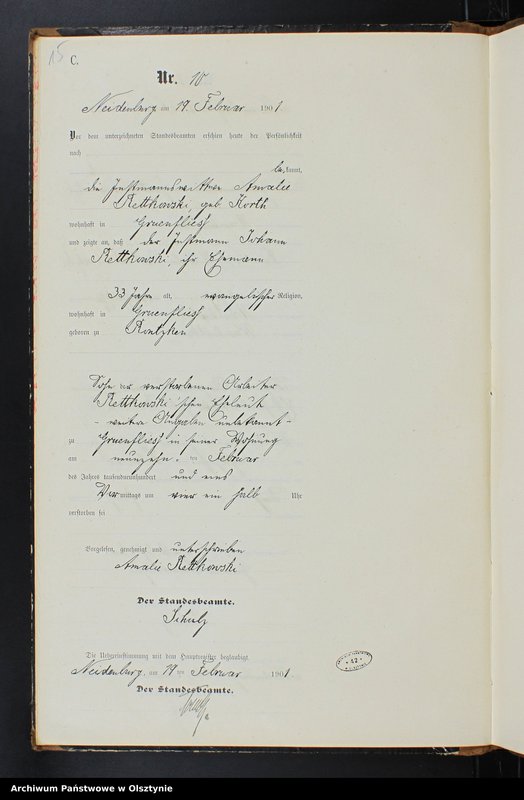 15
C.
Nr. 10
Neidenburg am 19. Februar 1901.
Vor dem unterzeichneten Standesbeamten erschien heute der Persönlichkeit
nach
bekannt,
die Instmannswittwe Amalie
Rettkowski, geb. Korth
wohnhaft in Gruenfliess
und zeigte an, daß der Instmann Johann
Rettkowski, ihr Ehemann
33 Jahre alt, evangelischer Religion,
wohnhaft in Gruenfliess
geboren zu Rontzken
Sohn der verstorbenen Arbeiter
Rettkowski'schen Eheleute
- weitere Angaben unbekannt -
zu Gruenfliess in seiner Wohnung
am neunzehn ten Februar
des Jahres tausendneunhundert und eins
Vormittags um vier ein halb Uhr
verstorben sei
Vorgelesen, genehmigt und unterschrieben
Amalie Rettkowski
Der Standesbeamte.
Schulz
Die Uebereinstimmung mit dem Hauptregister beglaubigt
Neidenburg, am 19 ten Februar 1901
Der Standesbeamte.
42
Archiwum Państwowe w Olsztynie